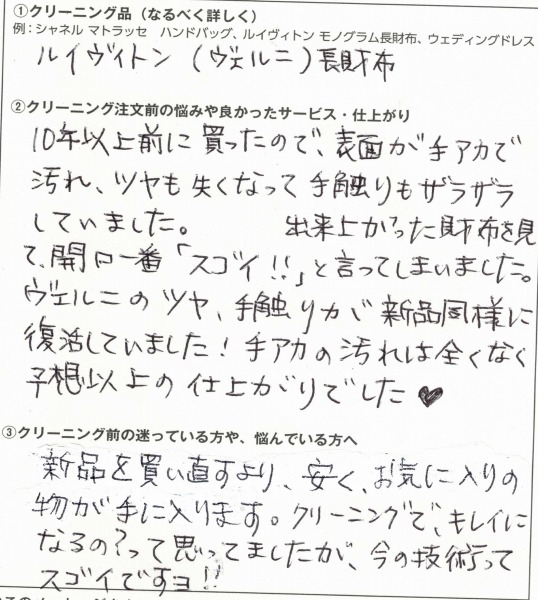 ①クリーニング品（なるべく詳しく）
例：シャネル マトラッセ　ハンドバッグ、ルイヴィトン モノグラム長財布、ウェディングドレス
ルイヴィトン（ヴェルニ）長財布
②クリーニング注文前の悩みや良かったサービス・仕上がり
10年以上前に買ったので、表面が手アカで
汚れ、ツヤも失くなって手触りもザラザラ
していました。　出来上がった財布を見
て、開口一番「スゴイ!!」と言ってしまいました。
ヴェルニのツヤ、手触りが新品同様に
復活していました！手アカの汚れは全くなく
予想以上の仕上がりでした♥
③クリーニング前の迷っている方や、悩んでいる方へ
新品を買い直すより、安く、お気に入りの
物が手に入ります。クリーニングで、キレイに
なるの?って思ってましたが、今の技術って
スゴイですヨ!!